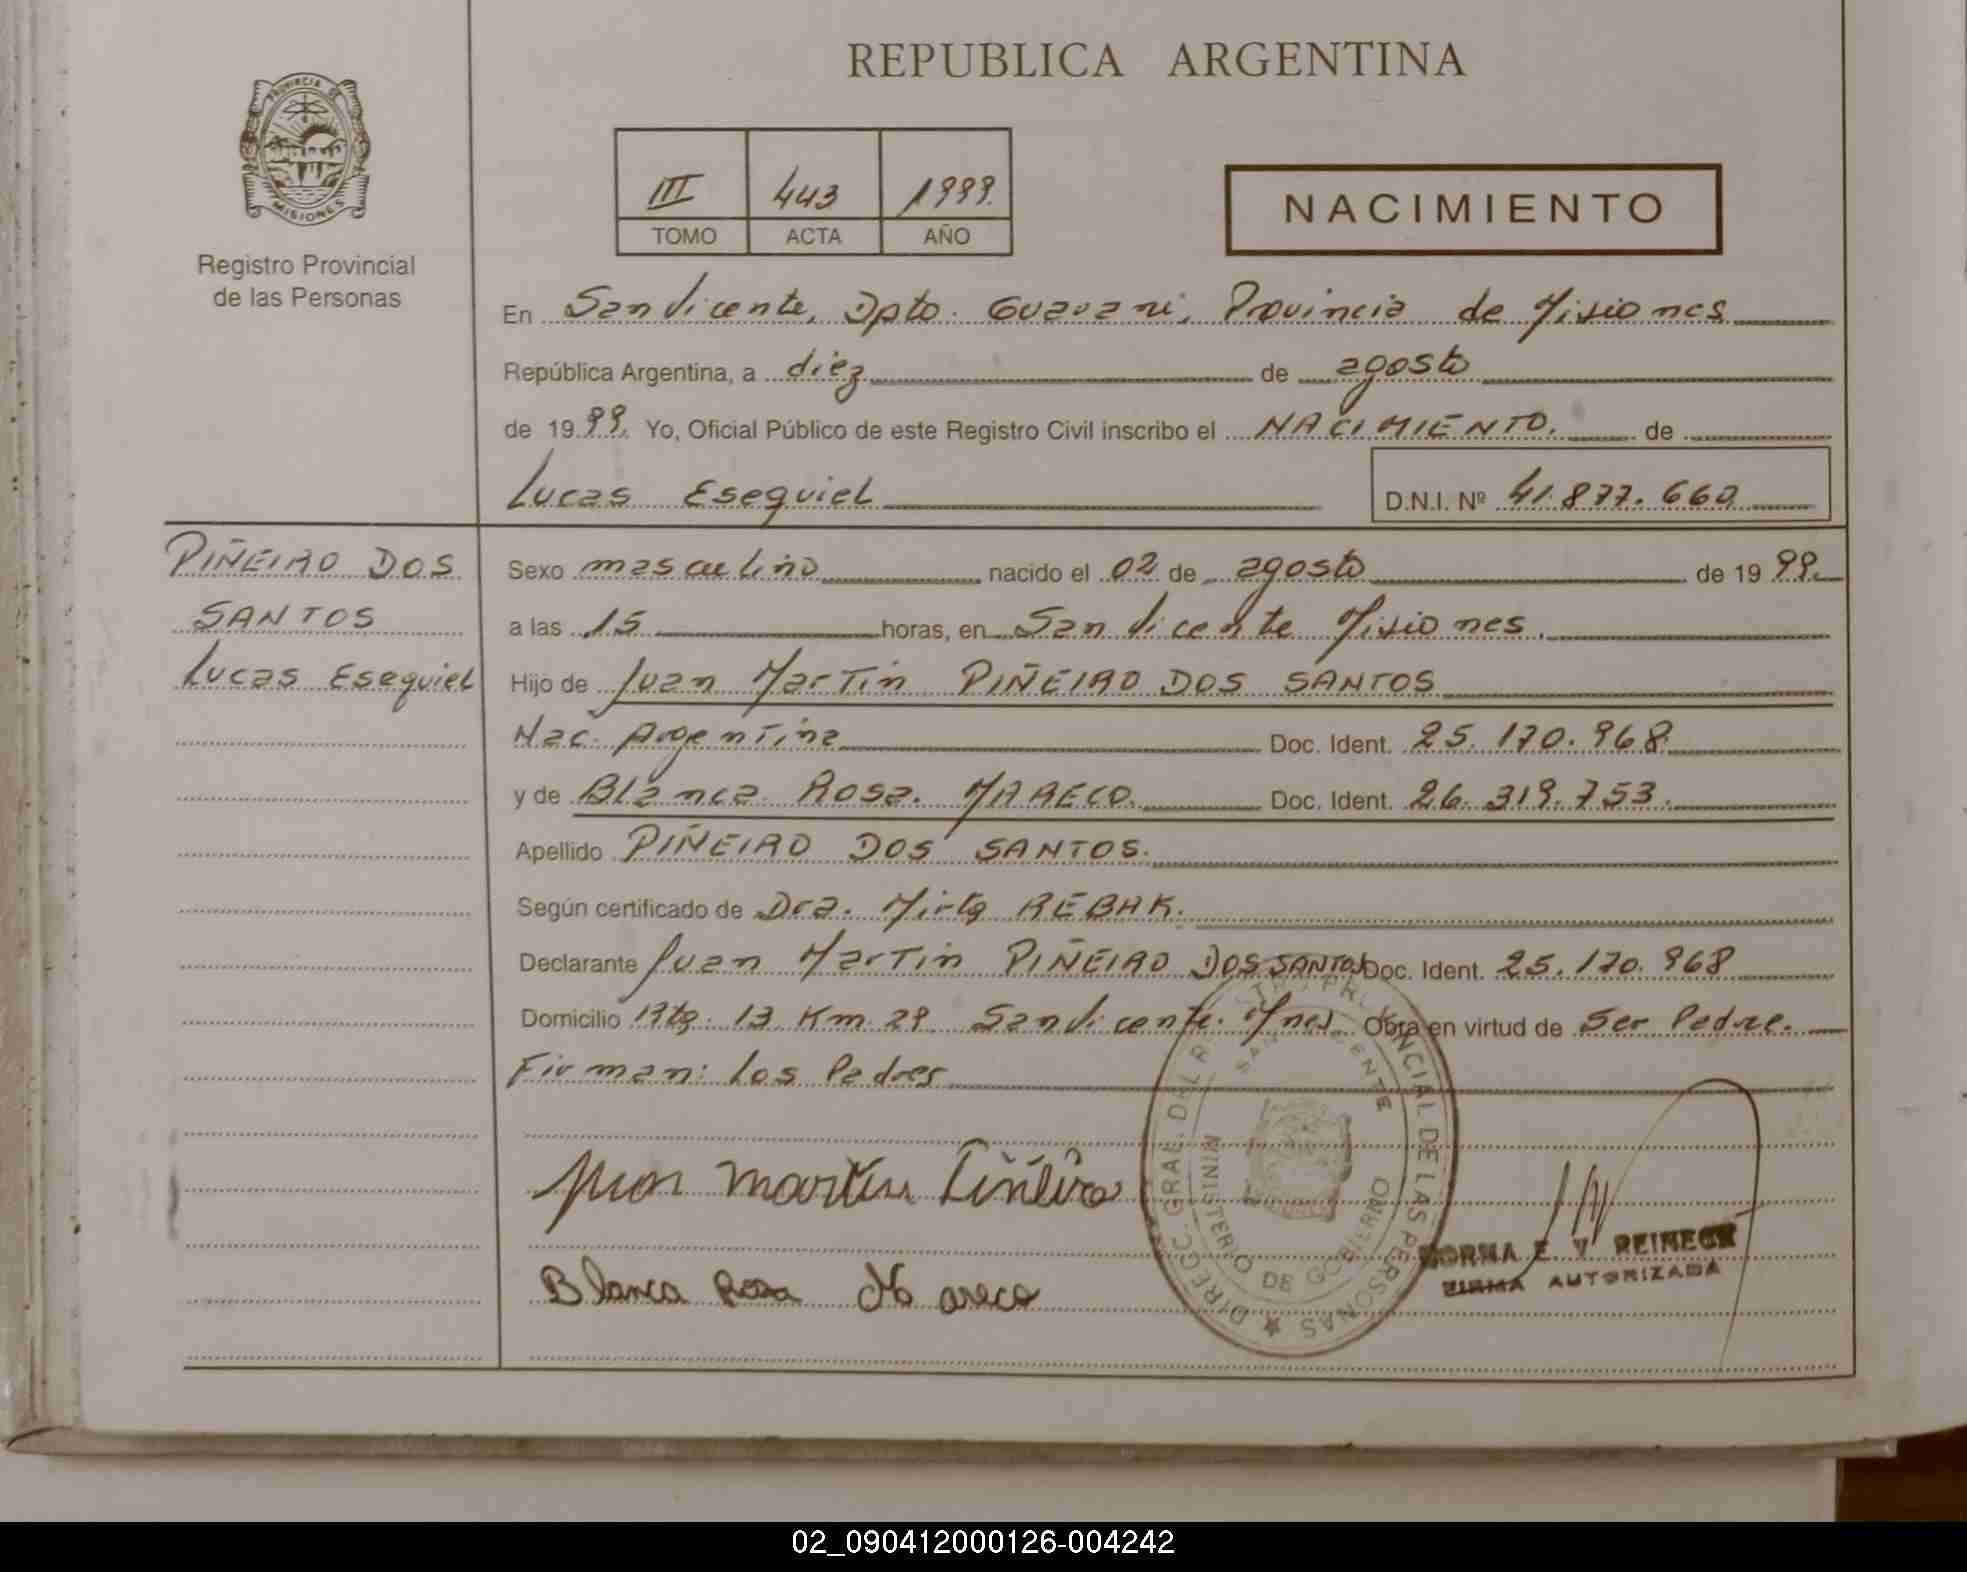 REPUBLICA ARGENTINA
PROVINCIA DE
MISIONES
Registro Provincial
de las Personas
III 443 1999.
TOMO ACTA AÑO
NACIMIENTO
En San Vicente, Dpto. Guarani, Provincia de Misiones
República Argentina, a diez de agosto
de 1999. Yo, Oficial Público de este Registro Civil inscribo el NACIMIENTO. de
Lucas Esequiel D.N.I. Nº 41.877.660
PIÑEIRO DOS
SANTOS
Lucas Esequiel
Sexo masculino nacido el 02 de agosto de 1999.
a las 15 horas, en San Vicente Misiones.
Hijo de Juan Martin PIÑEIRO DOS SANTOS
Nac. Argentina Doc. Ident. 25.170.968
y de Blanca Rosa. MARECO. Doc. Ident. 26.319.753.
Apellido PIÑEIRO DOS SANTOS.
Según certificado de Dra. Mirta REBAK.
Declarante Juan Martin PIÑEIRO DOS SANTOS Doc. Ident. 25.170.968
Domicilio Rta. 13 Km 29 San Vicente. Mnes. Obra en virtud de Ser Padre.
Firman: Los Padres
Juan Martin Piñeiro
Blanca Rosa Mareco
DIRECC. GRAL. DEL PROVINCIAL DE LAS PERSONAS
SAN VICENTE
MINISTERIO DE GOBIERNO
NORMA E. V. REINECK
FIRMA AUTORIZADA
02_090412000126-004242